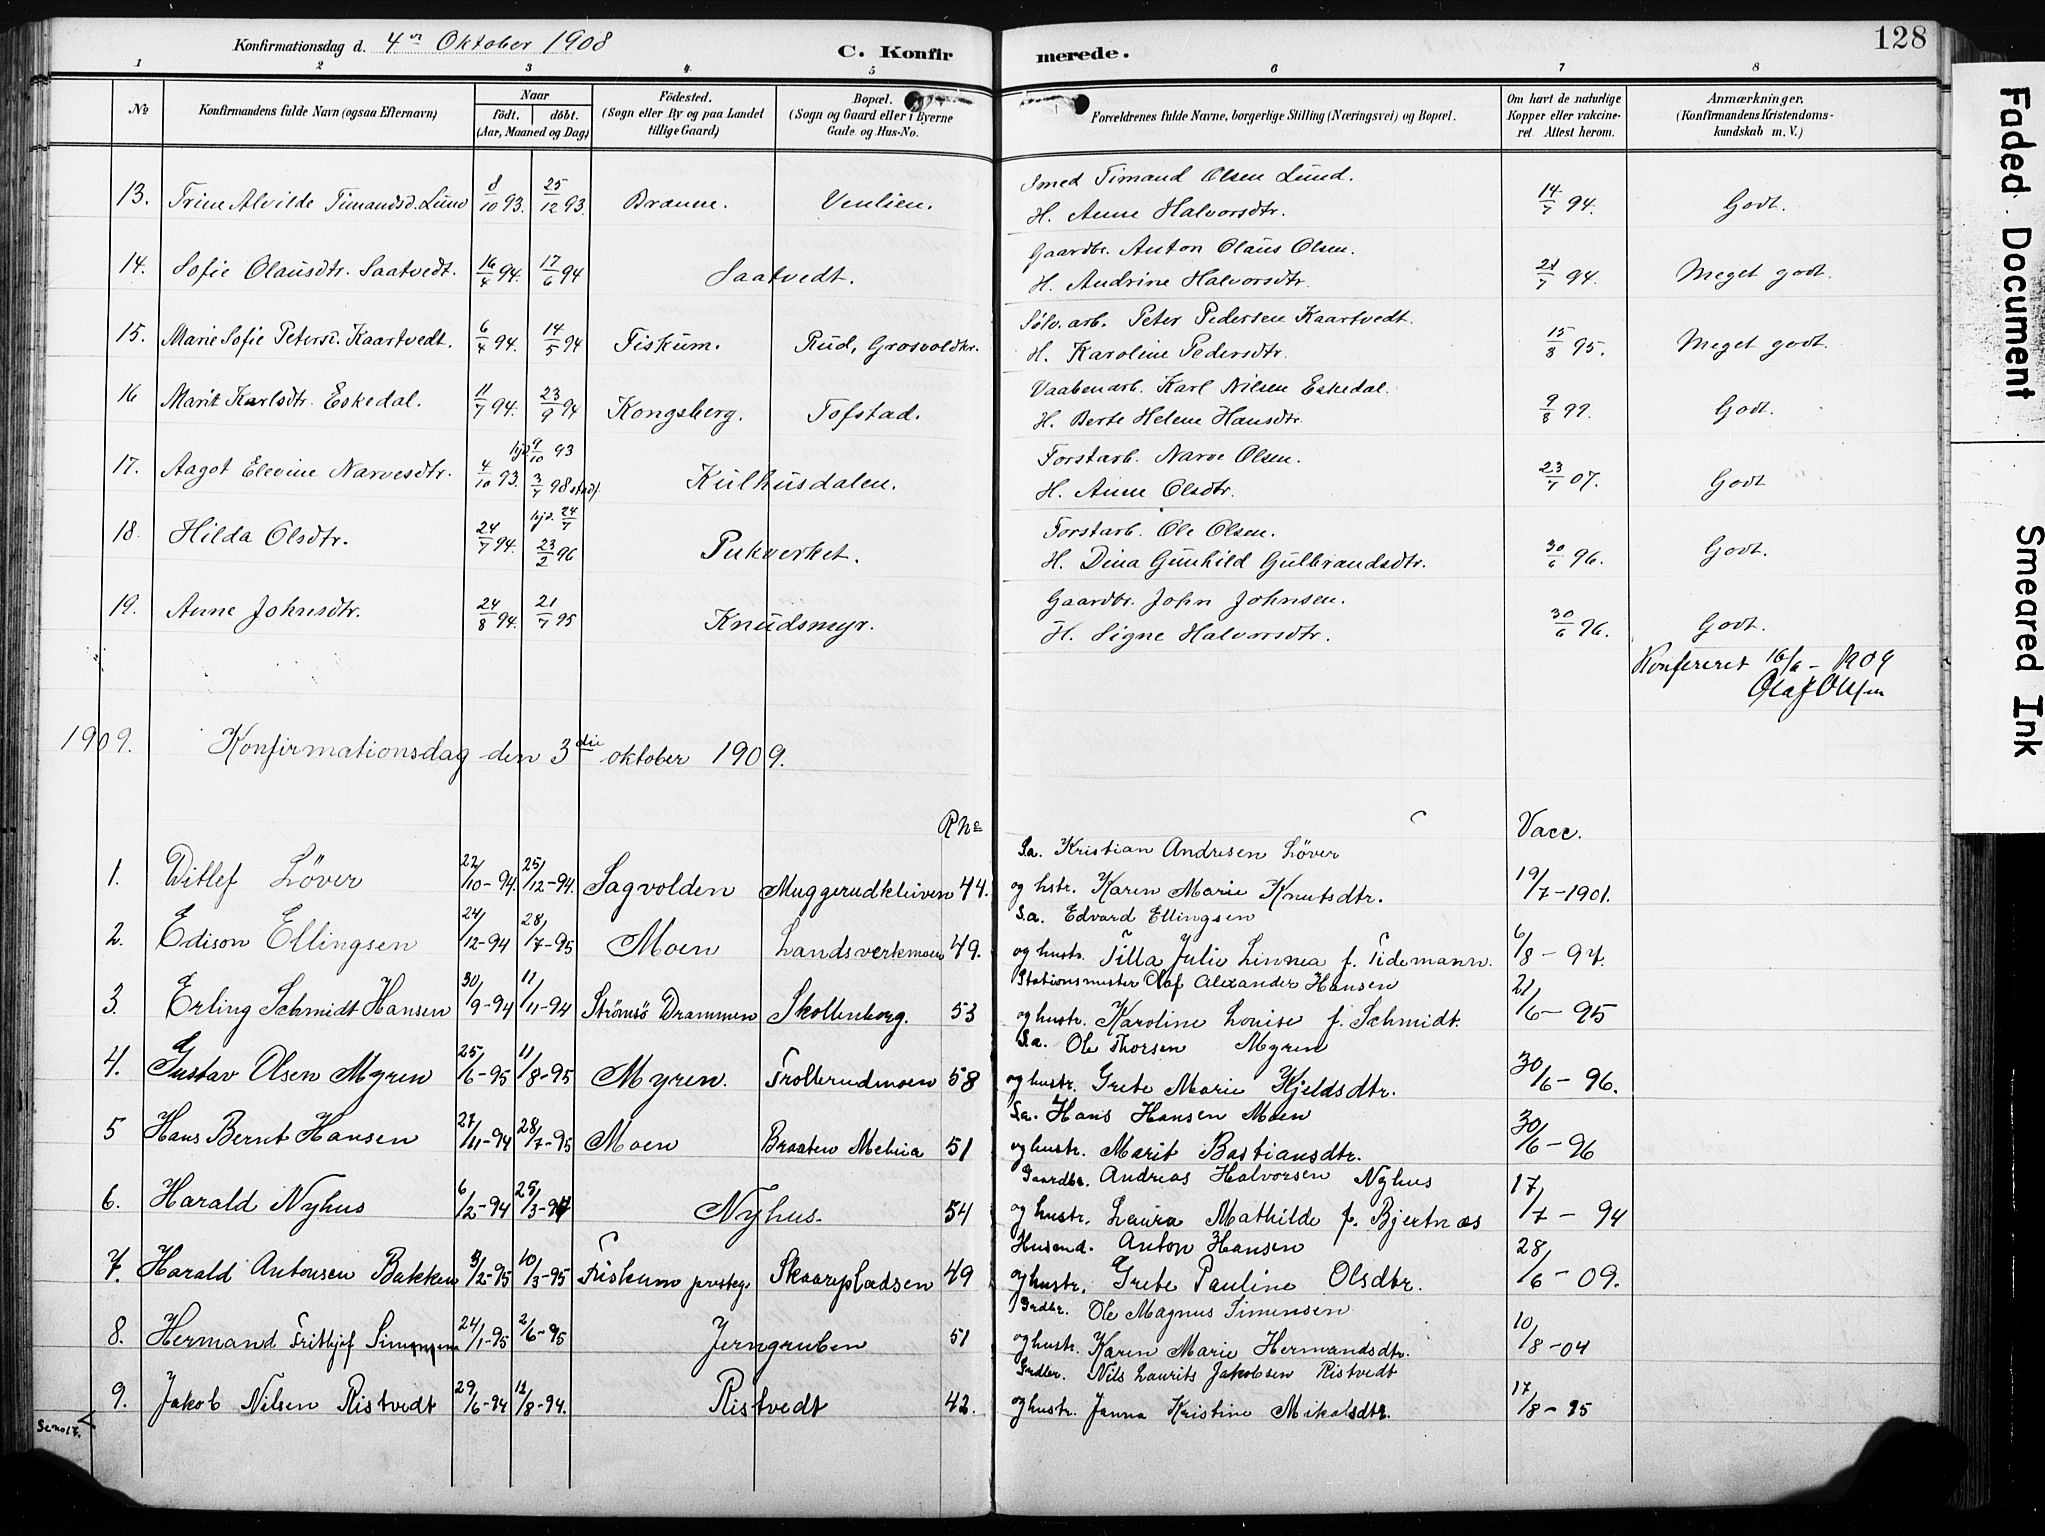 Konfirmationsdag d. 4de Oktober 1908 C. Konfirmerede. 128
1 2 3 4 5 6 7 8
No Konfirmandens fulde Navn (ogsaa Efternavn) Naar født. døbt. (Aar, Maaned og Dag) Fødested. (Sogn eller By og paa Landet tillige Gaard) Bopæl. (Sogn og Gaard eller i Byerne Gade og Hus-No. Forældrenes fulde Navne, borgerlige Stilling (Næringsvei) og Bopæl. Om havt de naturlige Kopper eller vakcineret Attest herom. Anmærkninger. (Konfirmandens Kristendomskundskab m. V.)
Smed Timand Olsen Lund.
13. Trine Alvilde Timandsd. Lund 8/10 93. 25/12 93. Venlien. H. Anne Halvorsdtr. 14/7 94. Godt.
Gaardbr. Anton Olaus Olsen.
14. Sofie Olausdtr. Saatvedt. 16/4 94. 17/6 94 Saatvedt. H. Andrine Halvorsdtr. 21/7 94. Meget godt.
Sølv. arb. Peter Pedersen Kaartvedt.
15. Marie Sofie Petersd. Kaartvedt. 6/4 94. 14/5 94 Fiskum. Rud, H. Karoline Pedersdtr. 15/8 95. Meget godt.
Vaabenarb. Karl Nilsen Eskedal.
16 Marit Karlsdtr. Eskedal. 11/7 94. 23/9 94 Kongsberg. Tofstad. H. Berte Helene Hansdtr. 9/8 99. Godt.
hjd. 9/10 93 Forstarb. Narve Olsen.
17. Aagot Elevine Narvesdtr. 4/10 93. 3/7 98 stadf. Kulhusdalen. H. Anne Olsdtr. 23/7 07. Godt
hjd. 24/7 Forstarb. Ole Olsen.
18. Hilda Olsdtr. 24/7 94. 23/2 96 Pukverket. H. Dina Gunhild Gulbrandsdtr. 30/6 96. Godt.
Gaardbr. John Johnsen.
19. Anne Johnsdtr. 24/8 94. 21/7 95 Knudsmyr. H. Signe Halvorsdtr. 30/6 96. Godt.
Konfereret 16/6 - 1909
Olaf Olsen
1909. Konfirmationsdag den 3die oktober 1909.
R No Vacc.
S.a. Kristian Andresen Løver
1. Ditlef Løver 22/10-94. 25/12-94. Sagvolden Muggerudkleiven 44. og hstr. Karen Marie Knutsdtr. 19/7-1901.
S.a. Edvard Ellingsen
2. Edison Ellingsen 24/12-94 28/7-95 Moen Landsverkmoen 49. og hustr. Tilla Julie Linnea f. Tidemann. 6/8 - 97.
Stationsmester Olaf Alexander Hansen
3. Erling Schmidt Hansen 30/9-94 11/11-94 Strømsø Drammen Skollenborg. 53 og hustr. Karoline Louise f. Schmidt. 21/6 - 95
S.a. Ole Thorsen Myren
4. Gustav Olsen Myren 25/6-95 11/8-95 Myren. Trollerudmoen 58 og hustr. Grete Marie Kjeldsdtr. 30/6 - 96.
S.a. Hans Hansen Moen
5 Hans Bernt Hansen 27/11-94 28/7-95 Moen Braaten 51 og hustr. Marit Bastiansdtr. 30/6 - 96
Gaardbr. Andreas Halvorsen Nyhus
6. Harald Nyhus 6/2-94 29/3-94 Nyhus. 54 og hustr. Laura Mathilde f. Bjertnæs 17/7 - 94
Husend. Anton Hansen
7. Harald Antonsen Bakken 3/2-95 10/3-95 Fiskum prsteg. Skaarpladsen 49 og hustr. Grete Pauline Olsdtr. 28/6 - 09.
Grdbr. Ole Magnus Simensen
8. Hermand Fritbjof Simensen 24/1-95 2/6-95 Jerngruben 51 og hustr. Karen Marie Hermandsdtr. 10/8 - 04
Grdbr. Nils Laurits Jakobsen Ristvedt
9. Jakob Nilsen Ristvedt 29/6-94 12/8-94. Ristvedt 42. og hustr. Janna Kristine Mikalsdtr. 17/8 - 95
Faded Document
Smeared Ink